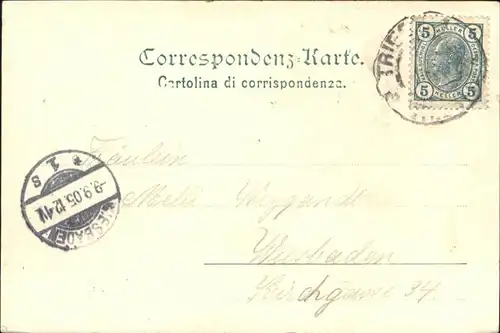 Correspondenz-Karte.
Cartolina di corrispondenza.
5 5
HELLER HELLER
5 5
TRIEST
Fräulein
Meli Wiegandt
Wiesbaden
Kirchgasse 34.
* 1 S
-9.9.05.12-1V.
WIESBADEN